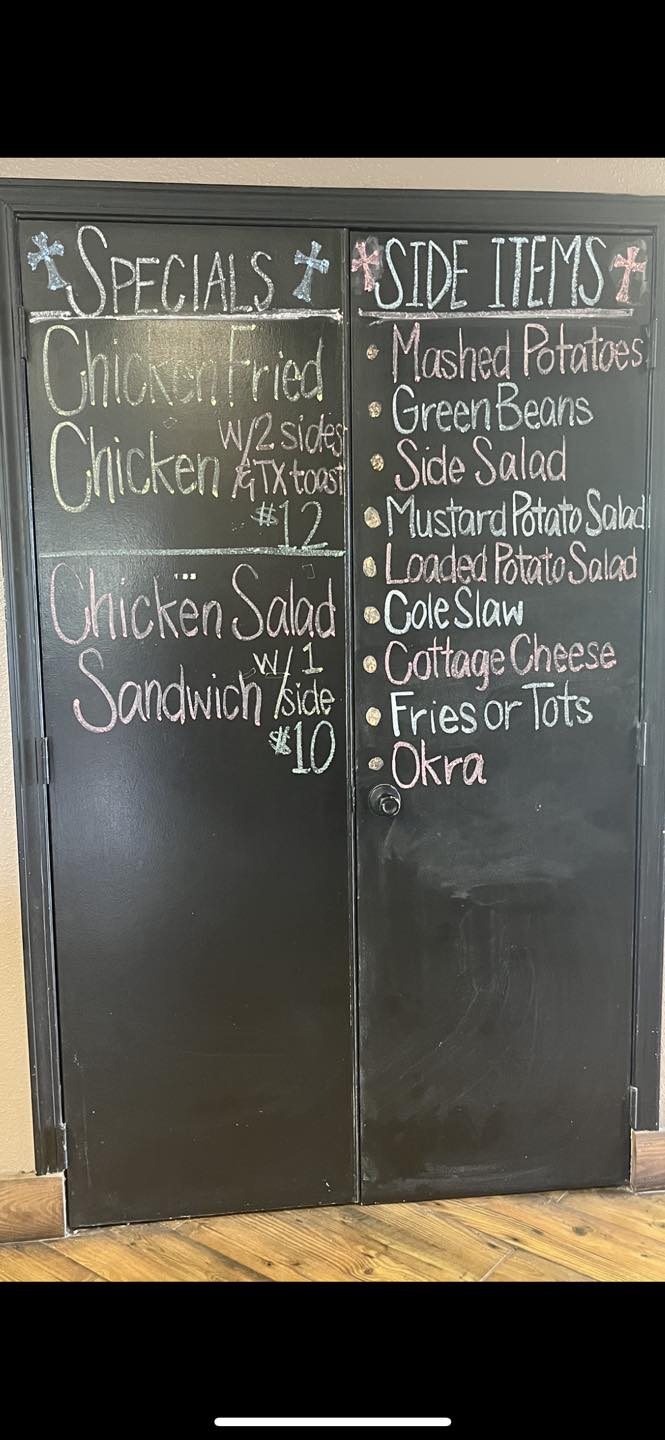 SPECIALS
Chicken Fried
Chicken w/2 sides
& TX toast
$12
Chicken Salad
Sandwich w/1
side
$10
SIDE ITEMS
Mashed Potatoes
Green Beans
Side Salad
Mustard Potato Salad
Loaded Potato Salad
Cole Slaw
Cottage Cheese
Fries or Tots
Okra